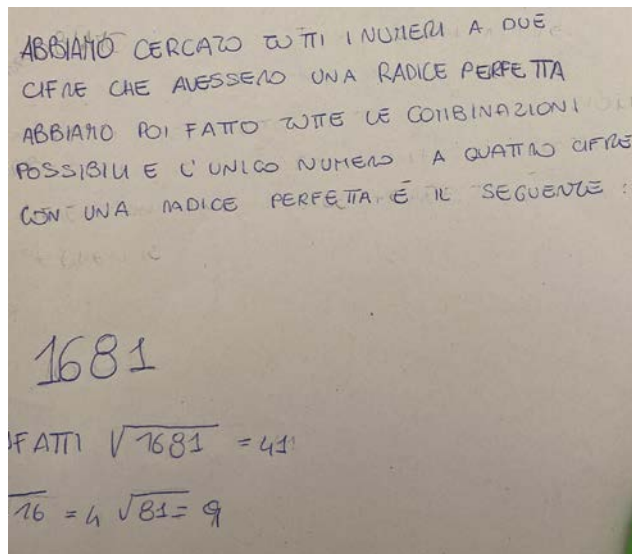 ABBIAMO CERCATO TUTTI I NUMERI A DUE
CIFRE CHE AVESSERO UNA RADICE PERFETTA
ABBIAMO POI FATTO TUTTE LE COMBINAZIONI
POSSIBILI E L'UNICO NUMERO A QUATTRO CIFRE
CON UNA RADICE PERFETTA È IL SEGUENTE :
1681
FATTI √1681 = 41
√16 = 4 √81 = 9